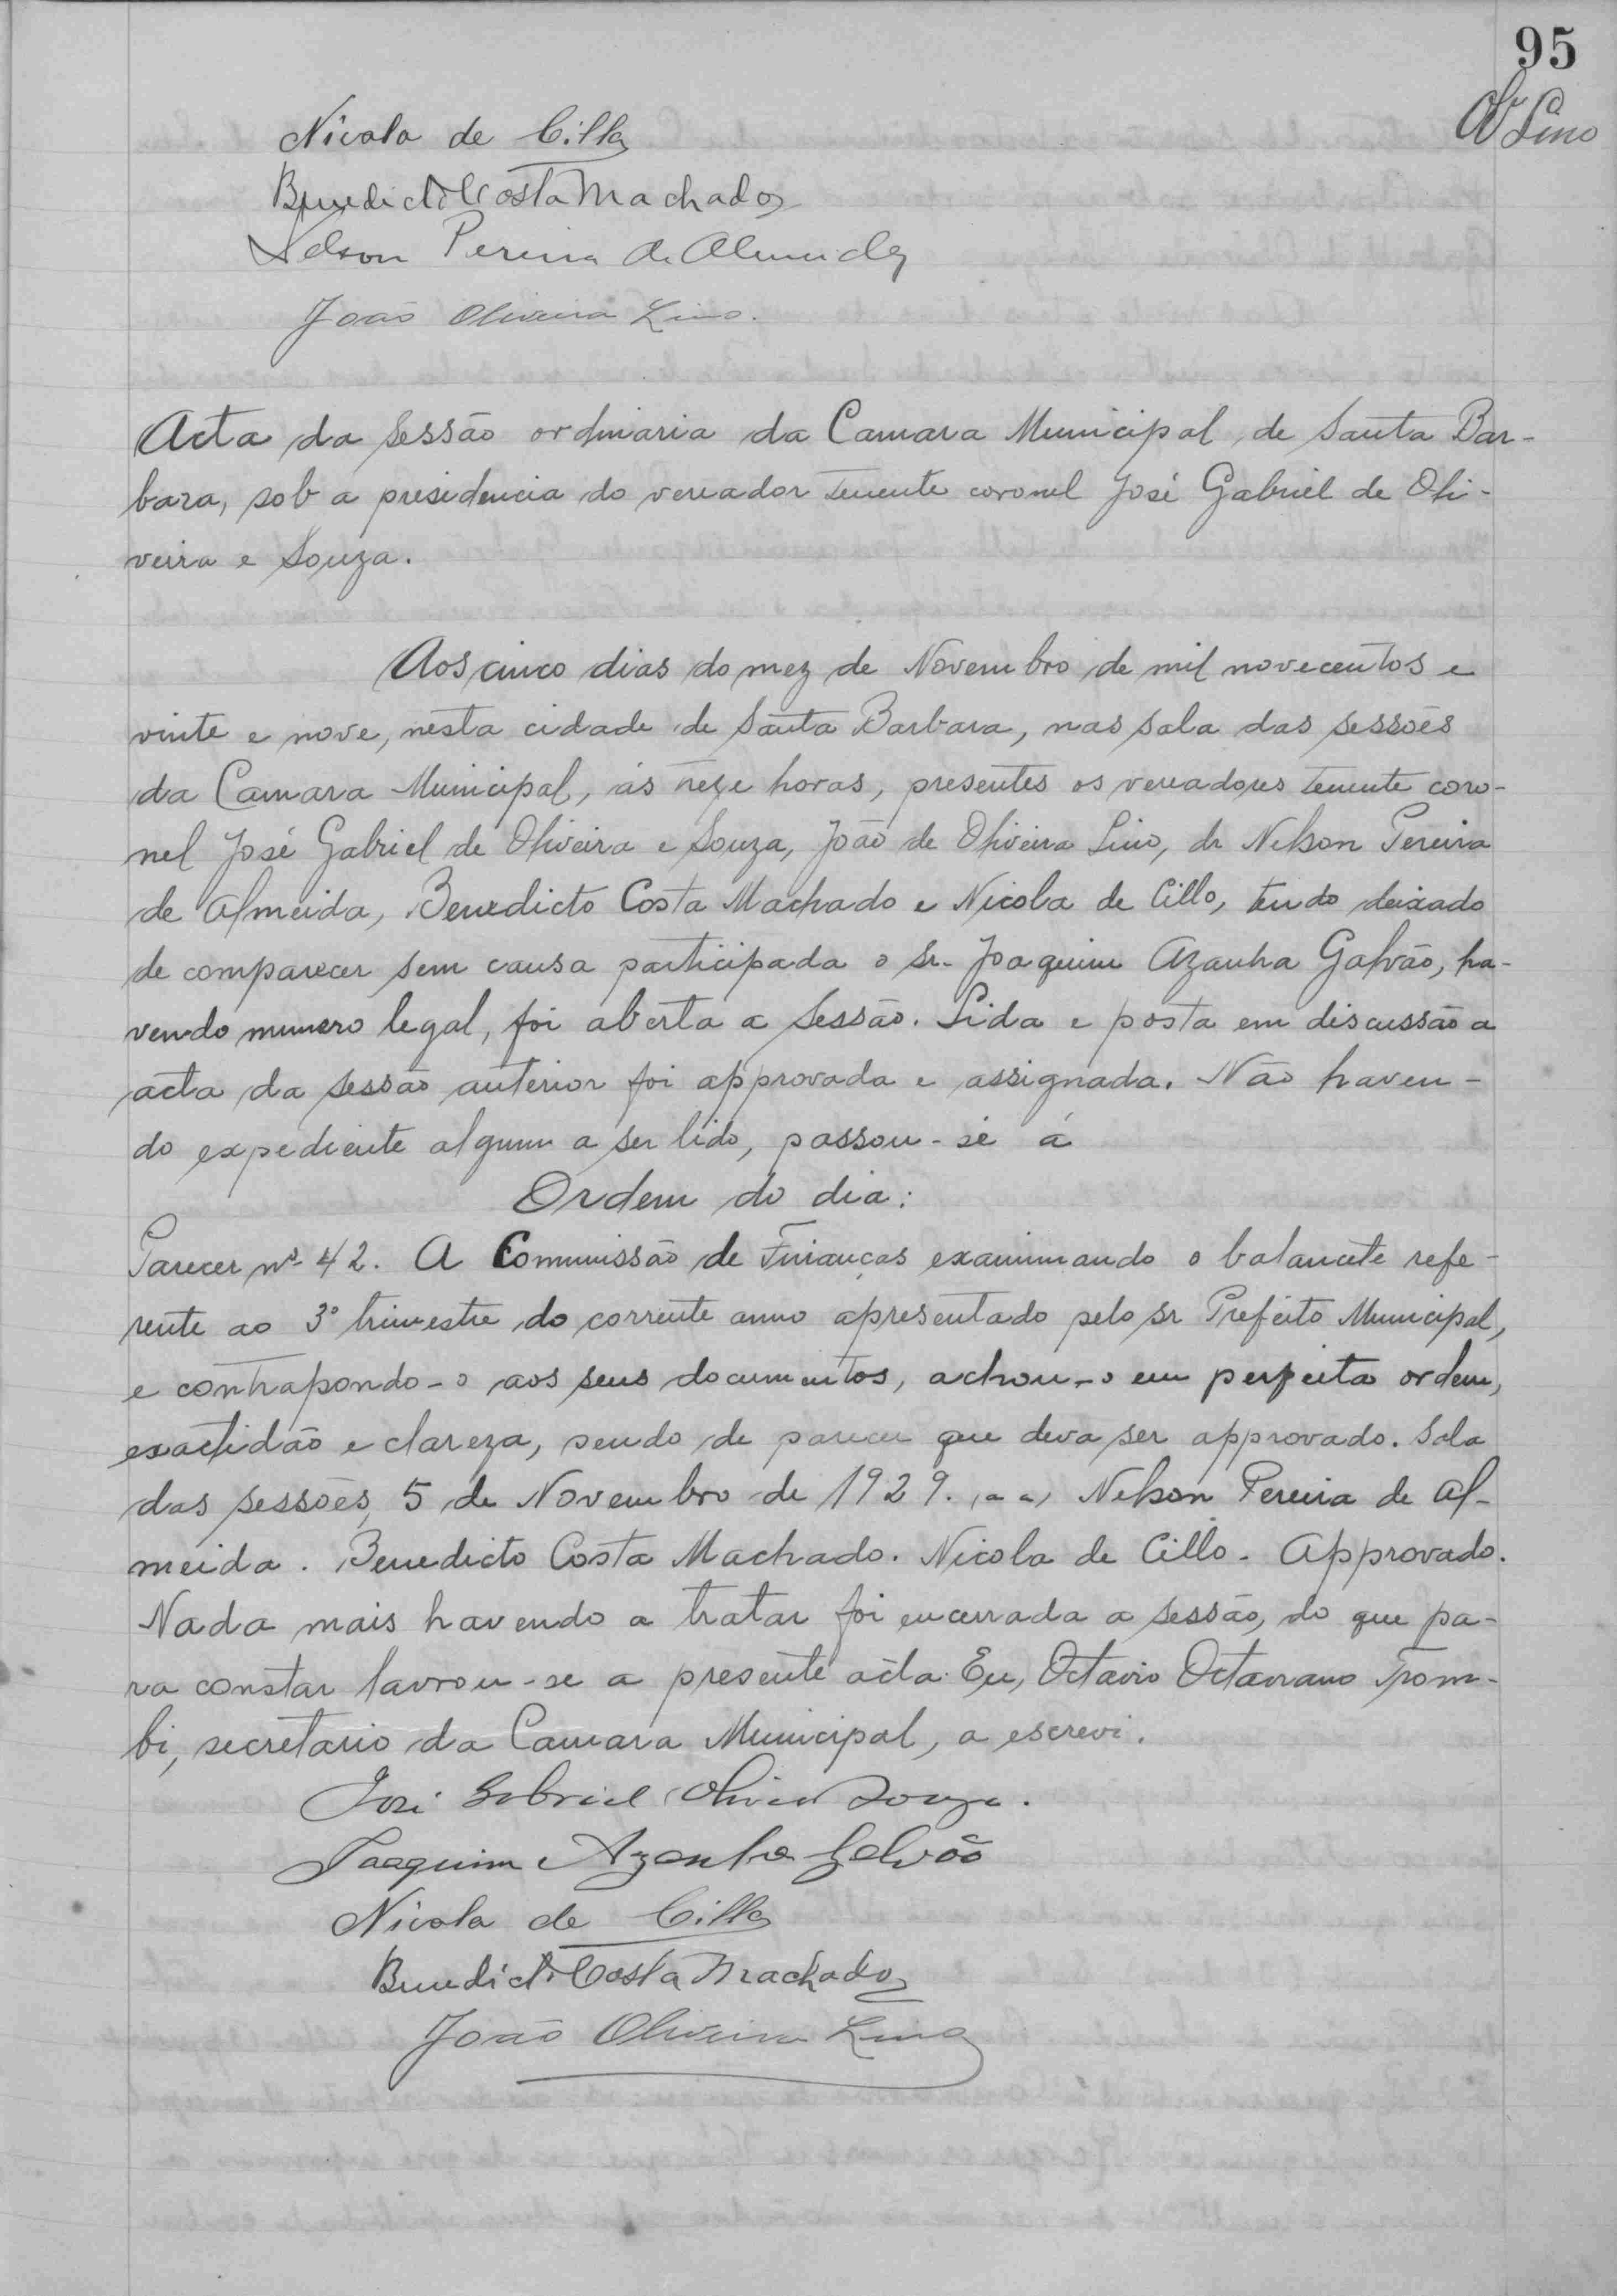 95
Ol. Lino
Nicola de Cillo
Benedicto Costa Machado
Nelson Pereira de Almeida
João Oliveira Lino.
Acta da sessão ordinaria da Camara Municipal, de Santa Bar-
bara, sob a presidencia do vereador tenente coronel José Gabriel de Oli-
veira e Souza.
Aos cinco dias do mez de Novembro de mil novecentos e
vinte e nove, nesta cidade de Santa Barbara, nas sala das sessões
da Camara Municipal, ás treze horas, presentes os vereadores tenente coro-
nel José Gabriel de Oliveira e Souza, João de Oliveira Lino, dr Nelson Pereira
de Almeida, Benedicto Costa Machado e Nicola de Cillo, tendo deixado
de comparecer sem causa participada o sr. Joaquim Azanha Galvão, ha-
vendo numero legal, foi aberta a sessão. Lida e posta em discussão a
acta da sessão anterior foi approvada e assignada. Não haven-
do expediente algum a ser lido, passou-se á
Ordem do dia:
Parecer nº 42. A Commissão de Finanças examinando o balancete refe-
rente ao 3º trimestre do corrente anno apresentado pelo sr Prefeito Municipal,
e contrapondo-o aos seus documentos, achou-o em perfeita ordem,
exactidão e clareza, sendo de parecer que deva ser approvado. Sala
das sessões, 5 de Novembro de 1929. (a a) Nelson Pereira de Al-
meida. Benedicto Costa Machado. Nicola de Cillo. Approvado.
Nada mais havendo a tratar foi encerrada a sessão, do que pa-
ra constar lavrou-se a presente acta. Eu, Octavio Octaviano Trom-
bi, secretario da Camara Municipal, a escrevi.
José Gabriel Oliveira Souza.
Joaquim Azanha Galvão
Nicola de Cillo
Benedicto Costa Machado
João Oliveira Lino